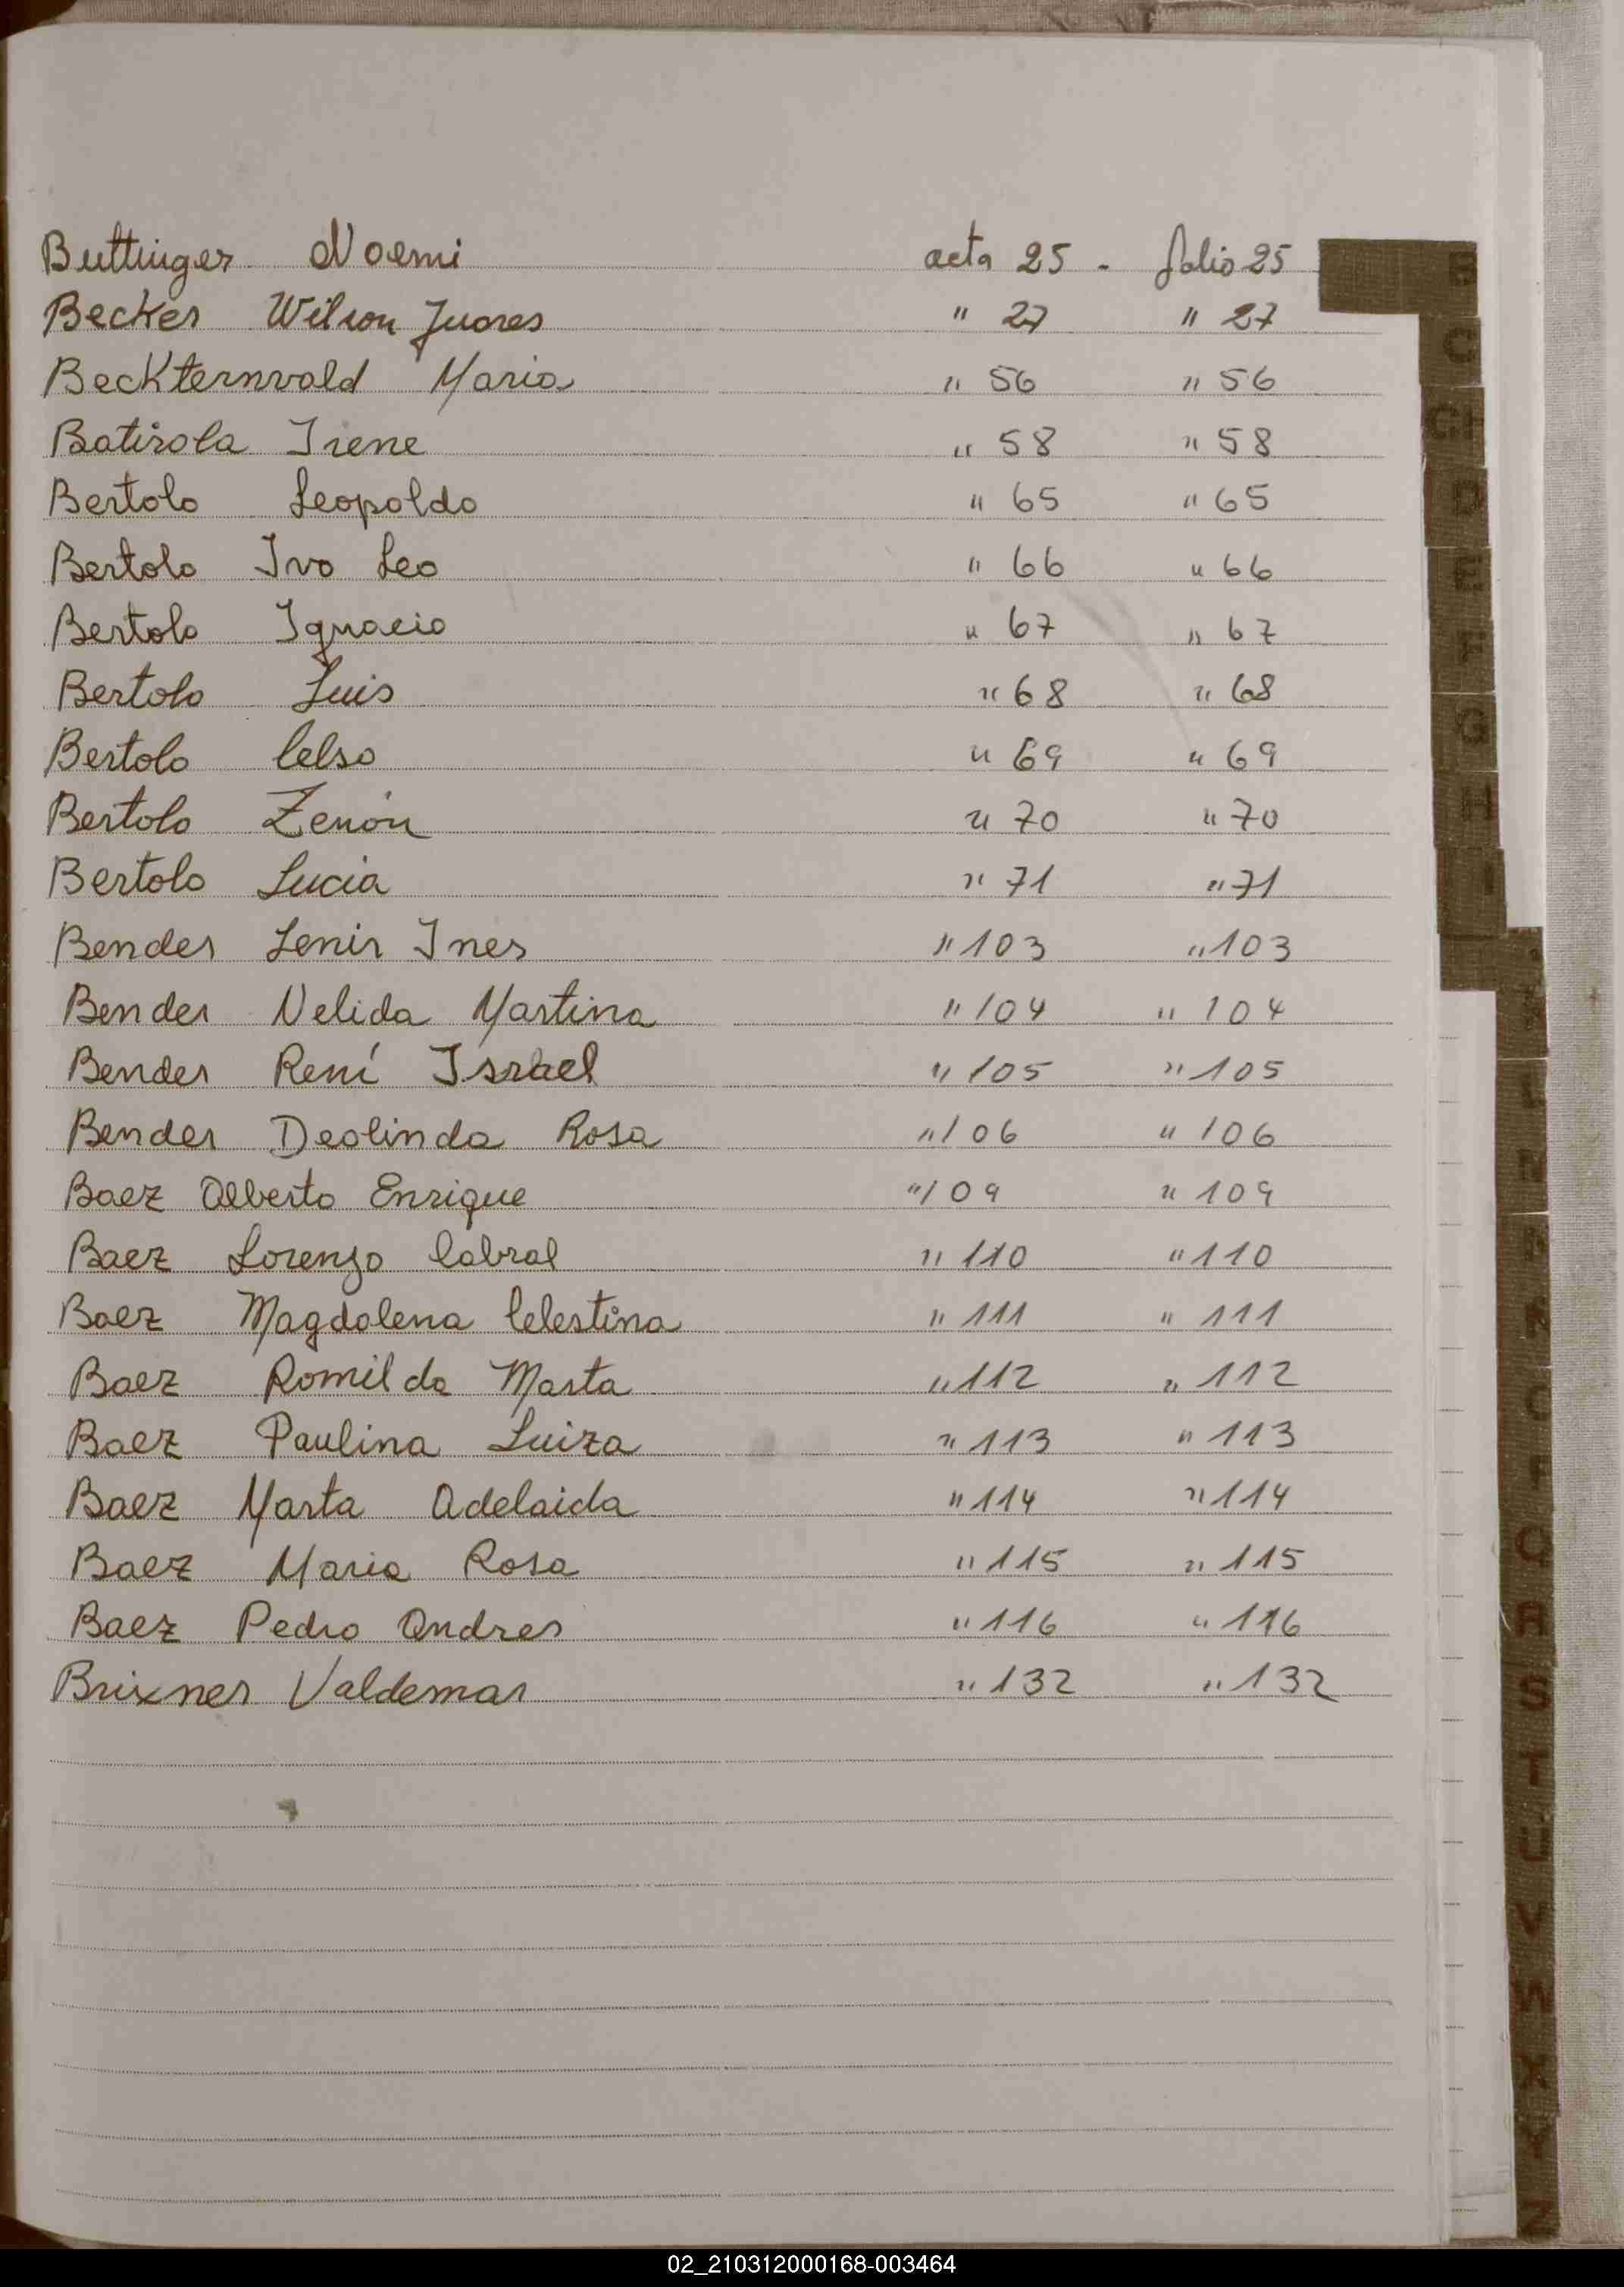 Buttinger Noemi acta 25 - folio 25
Becker Wilson Juares " 27 " 27
Beckternvald Maria " 56 " 56
Batirola Irene " 58 " 58
Bertolo Leopoldo " 65 " 65
Bertolo Ivo Leo " 66 " 66
Bertolo Ignacio " 67 " 67
Bertolo Luis " 68 " 68
Bertolo Celso " 69 " 69
Bertolo Zenón " 70 " 70
Bertolo Lucia " 71 " 71
Bender Lenir Ines " 103 " 103
Bender Nelida Martina " 104 " 104
Bender René Israel " 105 " 105
Bender Deolinda Rosa " 106 " 106
Baez Alberto Enrique " 109 " 109
Baez Lorenzo Cabral " 110 " 110
Baez Magdalena Celestina " 111 " 111
Baez Romilda Marta " 112 " 112
Baez Paulina Luiza " 113 " 113
Baez Marta Adelaida " 114 " 114
Baez Maria Rosa " 115 " 115
Baez Pedro Andres " 116 " 116
Brixner Valdemar " 132 " 132
B
C
CH
D
E
F
G
H
I
Q
R
S
T
U
V
W
X
Y
Z
02_210312000168-003464